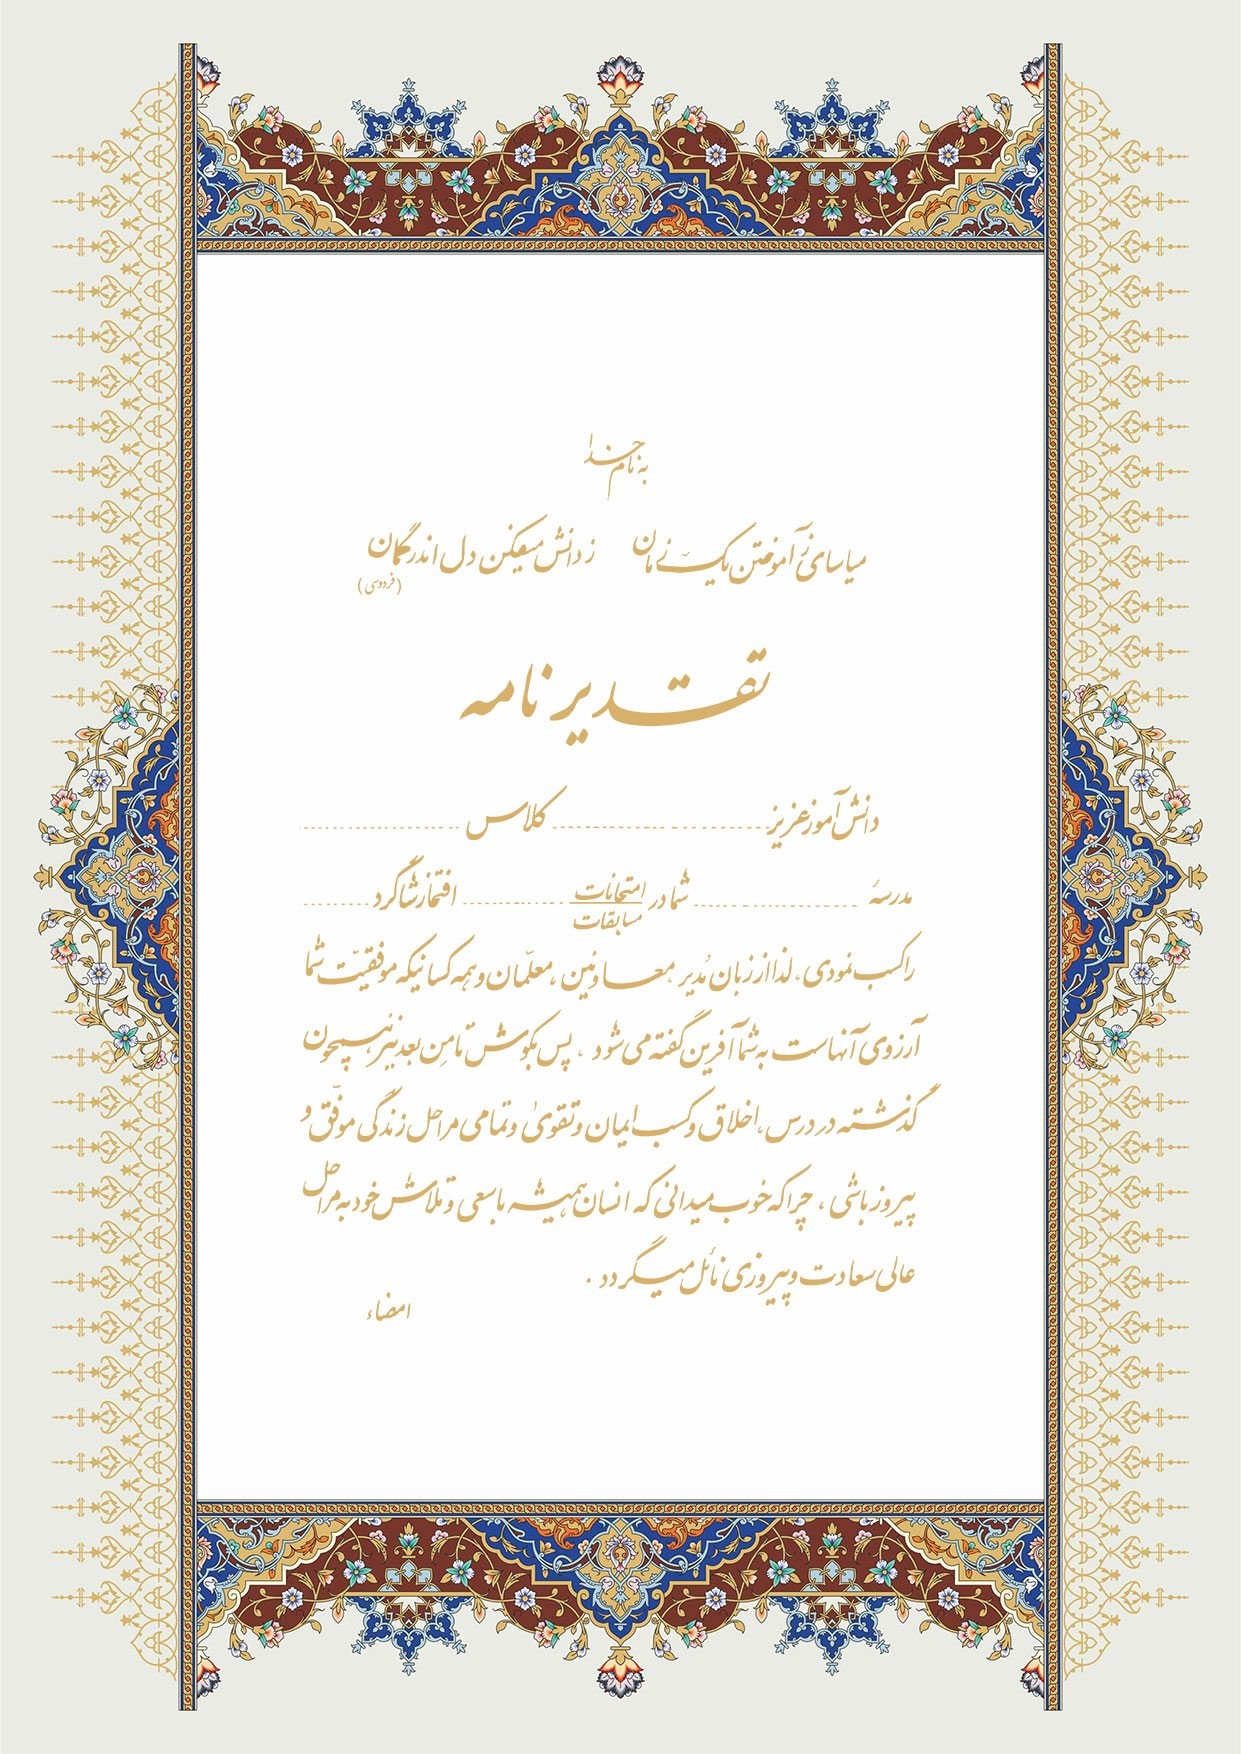 به نام خدا
میاسای ز آموختن یک زمان    ز دانش میفکن دل اندر گمان
(فردوسی)
تقدیرنامه
دانش‌آموز عزیز ........................ کلاس ........................
مدرسهٔ ........................ شما در امتحانات ........................ افتخار شاگرد ............
مسابقات
را کسب نمودی، لذا از زبان مُدیر، معاونین، معلّمان و همه کسانیکه موفقیّت شما
آرزوی آنهاست به شما آفرین گفته می‌شود، پس بکوش تا مِن بعد نیز همچون
گذشته در درس، اخلاق و کسب ایمان و تقویٰ و تمامی مراحل زندگی موفّق و
پیروز باشی، چرا که خوب میدانی که انسان همیشه با سعی و تلاش خود به مراحل
عالی سعادت و پیروزی نائل میگردد.
امضاء